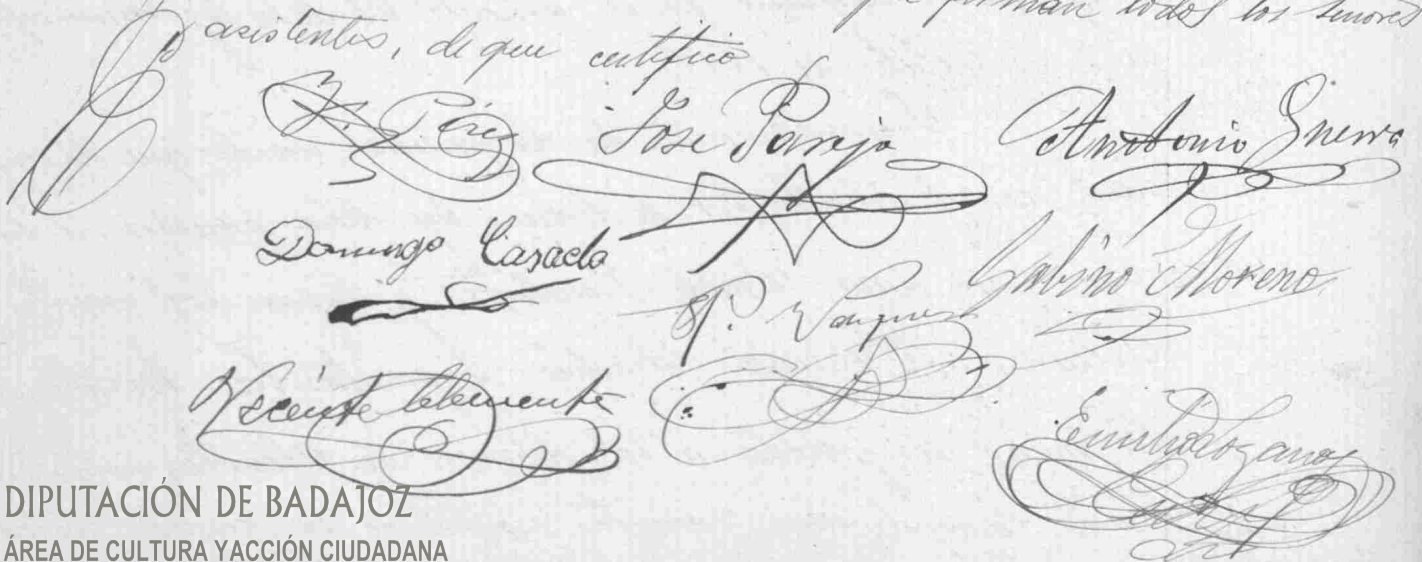 firman todos los señores
asistentes, de que certifico
Pérez
Jose Pareja
Antonio Guerra
Domingo Casado
Sabino Moreno
P. Vazquez
Vicente Clemente
Emilio Lozano
DIPUTACIÓN DE BADAJOZ
ÁREA DE CULTURA YACCIÓN CIUDADANA